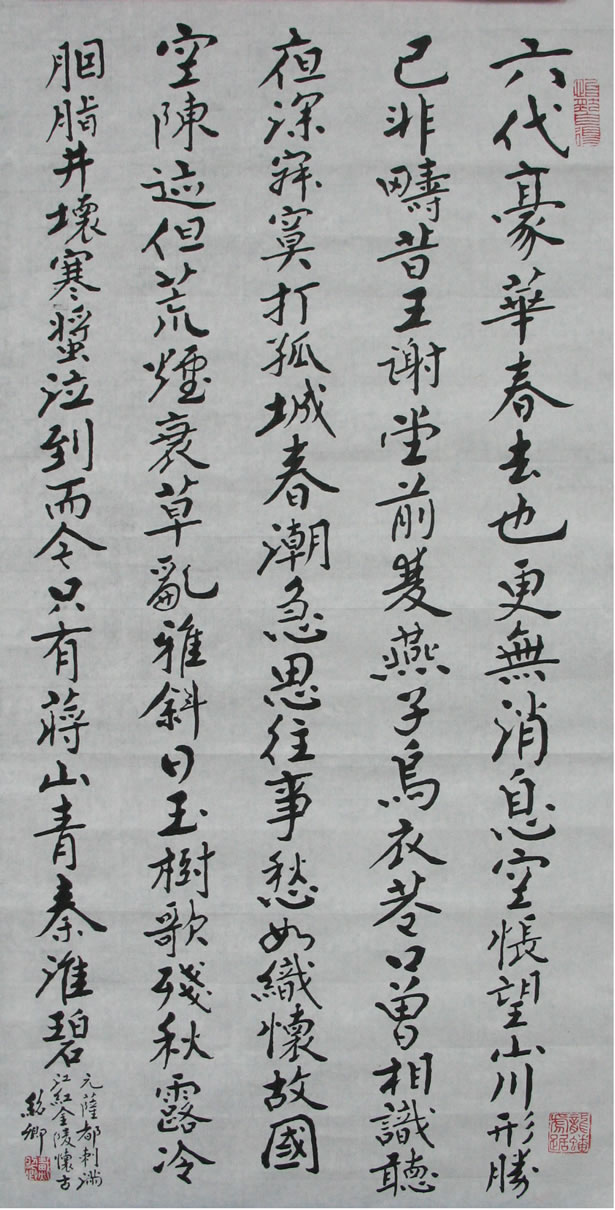 六代豪華春去也更無消息空悵望山川形勝
已非疇昔王謝堂前雙燕子烏衣巷口曾相識聽
夜深寂寞打孤城春潮急思往事愁如織懷故國
空陳迹但荒煙衰草亂雅斜日玉樹歌殘秋露冷
胭脂井壞寒螿泣到而今只有蔣山青秦淮碧
元薩都剌滿
江紅金陵懷古
龍蟠
虎踞